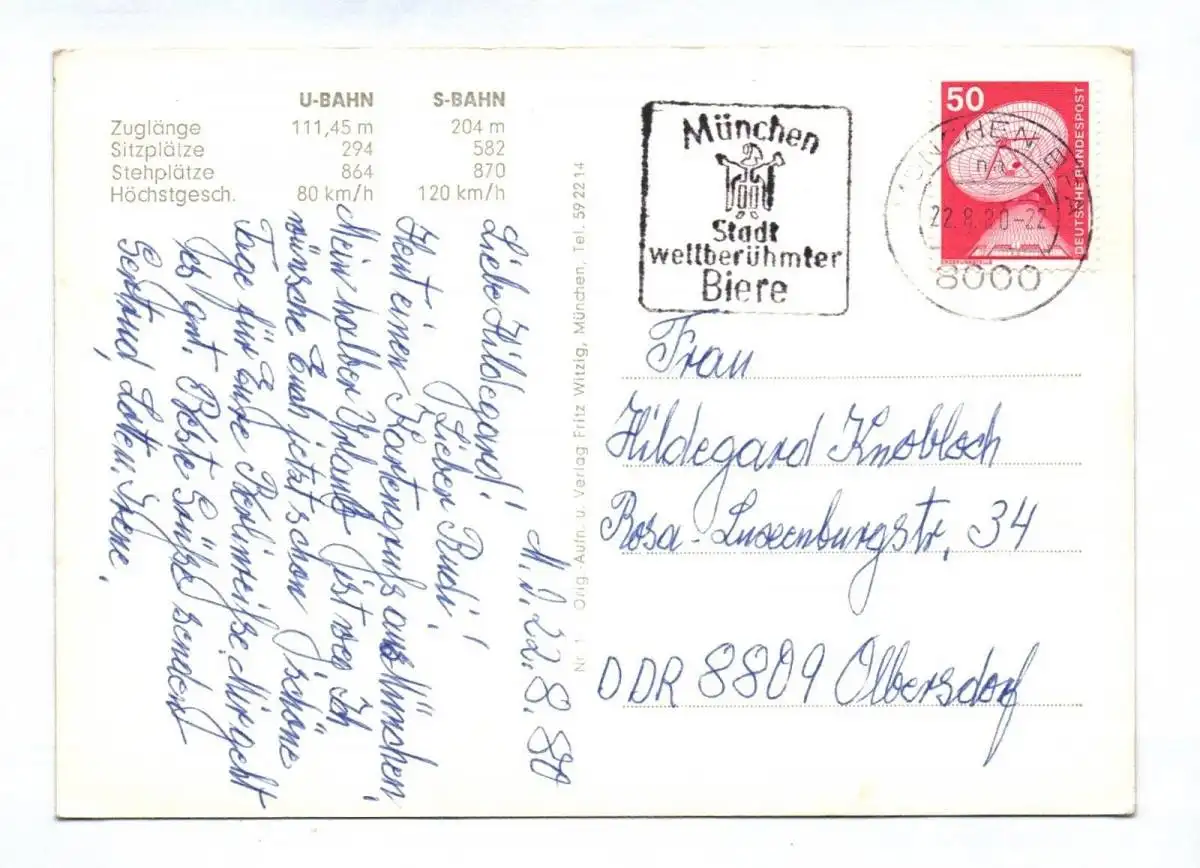 U-BAHN S-BAHN
Zuglänge 111,45 m 204 m
Sitzplätze 294 582
Stehplätze 864 870
Höchstgesch. 80 km/h 120 km/h
M. d. 22. 8. 80
Liebe Hildegard!
Lieber Rudi!
Heut einen Kartengruß aus München.
Mein halber Urlaub ist weg. Ich
wünsche Euch jetzt schon schöne
Tage für Eure Berlinreise. Mir geht
es gut. Beste Grüße senden
Gertrud, Irene.
Nr. 1 Orig.-Aufn. u. Verlag Fritz Witzig, München, Tel. 59 22 14
München
Stadt
weltberühmter
Biere
50
DEUTSCHE BUNDESPOST
22.8.80-22
8000
Frau
Hildegard Knobloch
Rosa-Luxenburgstr. 34
DDR 8809 Olbersdorf